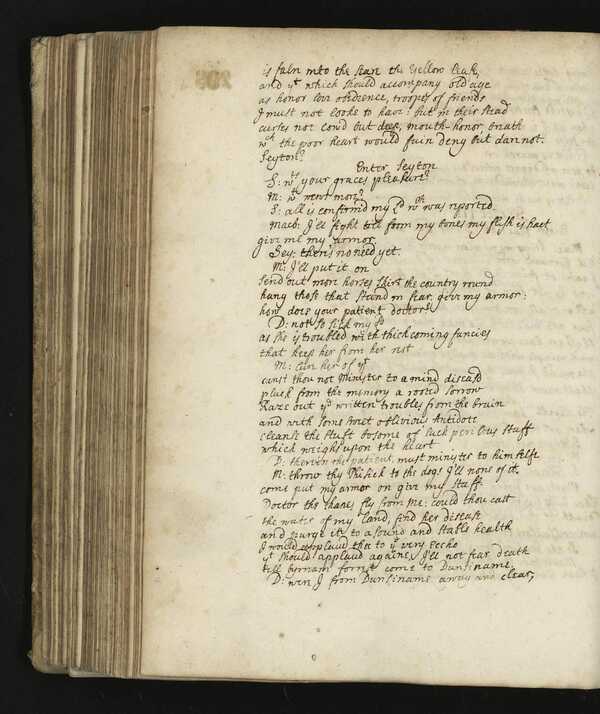 is faln into the Sear the Yellow leafe,
and yt which should accompany old age
as honor love obedience, troopes of friends
I must not looke to have: but in their stead
curses not Cow'd but deep, mouth-honor breath
wch the poor heart would fain deny but dan not.
Seyton?
Enter Seyton
S: wts your graces pleasure?
M: wt news more?
S: all is confirmd my Ld wch was reported
Macb: I'll fight till from my bones my flesh is hact
give me my armor
Sey: theris no need yet.
M: I'll put it on
send out more horses skirr the country round
hang those that stand in fear. give my armor:
how does your patient doctor?
D: not so sick my Ld
as she is troubled with thick coming fancies
that keep her from her rest
M: cure her of yt
canst thou not Minister to a mind diseasd
pluck from the memory a rooted sorrow
Raze out ye written troubles from the brain
and with some sweet oblivious Antidote
cleanse the stuft bosome of such perilous stuff
which weighs upon the heart
D: therein the patient must minister to himselfe
M: throw thy Phisick to the dogs I'll none of it.
come put my armor on give my staff
Doctor the thanes fly from me: could thou cast
the water of my land, find her disease
and purge it to a sound and stable health
I would applaud thee to ye very Eccho
yt should applaud againe, I'll not fear death
till byrnam forrest come to Dunsiname
D: were I from Dunsiname away and clear,